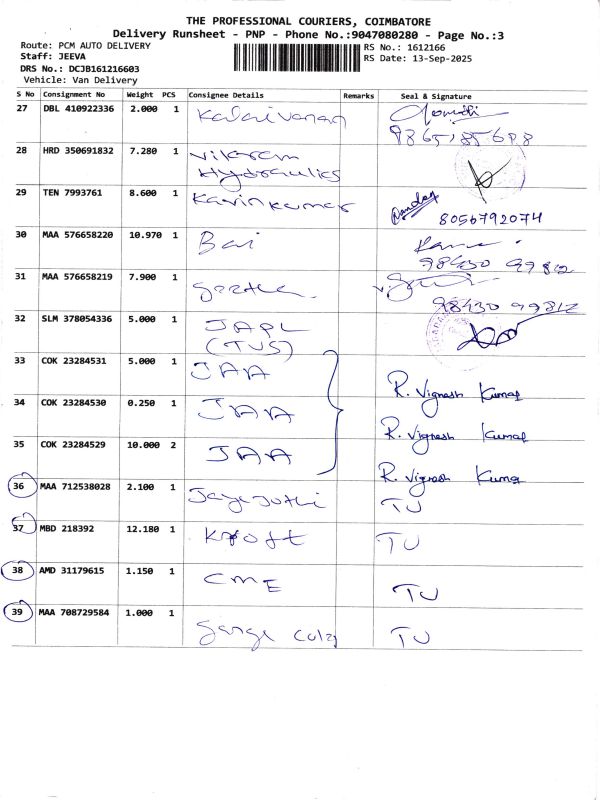 THE PROFESSIONAL COURIERS, COIMBATORE
Delivery Runsheet - PNP - Phone No.:9047080280 - Page No.:3
Route: PCM AUTO DELIVERY
RS No.: 1612166
Staff: JEEVA
RS Date: 13-Sep-2025
DRS No.: DCJB161216603
Vehicle: Van Delivery
S No Consignment No Weight PCS Consignee Details Remarks Seal & Signature
27 DBL 410922336 2.000 1 Kalaivanan
28 HRD 350691832 7.280 1 Vikram
Hydraulics
29 TEN 7993761 8.600 1 Kavinkumar 8056792074
30 MAA 576658220 10.970 1 Bai
98430 99812
31 MAA 576658219 7.900 1 Geetha
98430 99812
32 SLM 378054336 5.000 1 JAPL
(TVS)
33 COK 23284531 5.000 1 JAA R. Vignesh Kumar
34 COK 23284530 0.250 1 JAA R. Vignesh Kumar
35 COK 23284529 10.000 2 JAA R. Vignesh Kumar
36 MAA 712538028 2.100 1 Jayajothi TU
37 MBD 218392 12.180 1 TU
38 AMD 31179615 1.150 1 CME TU
39 MAA 708729584 1.000 1 TU